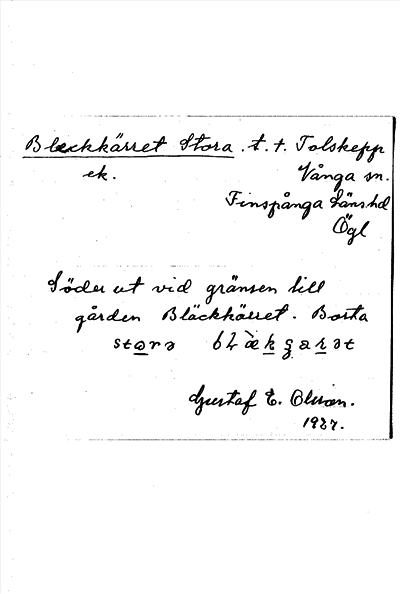 Bläckkärret Stora . t. t. Tolskepp
ek. Vånga sn.
Finspånga Läns hd
Ögl
Söder ut vid gränsen till
gården Bläckkärret. Borta
Gustaf E. Olsson.
1937.